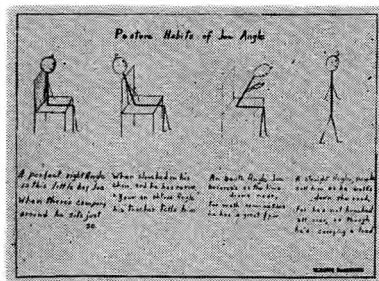 Posture Habits of Joe Angle
A perfect right Angle
is this little boy Joe
When theres company
around he sits just
so.
When slouched in his
chair, and he has nerve,
your an obtuse Angle
his teacher tells him
An acute Angle Joe
becomes as the time
draws near,
For math exam
he has a great fear
A straight Angle, people
call him as he walks
down the road,
For he's not hunched
all over, as though
he's carrying a load